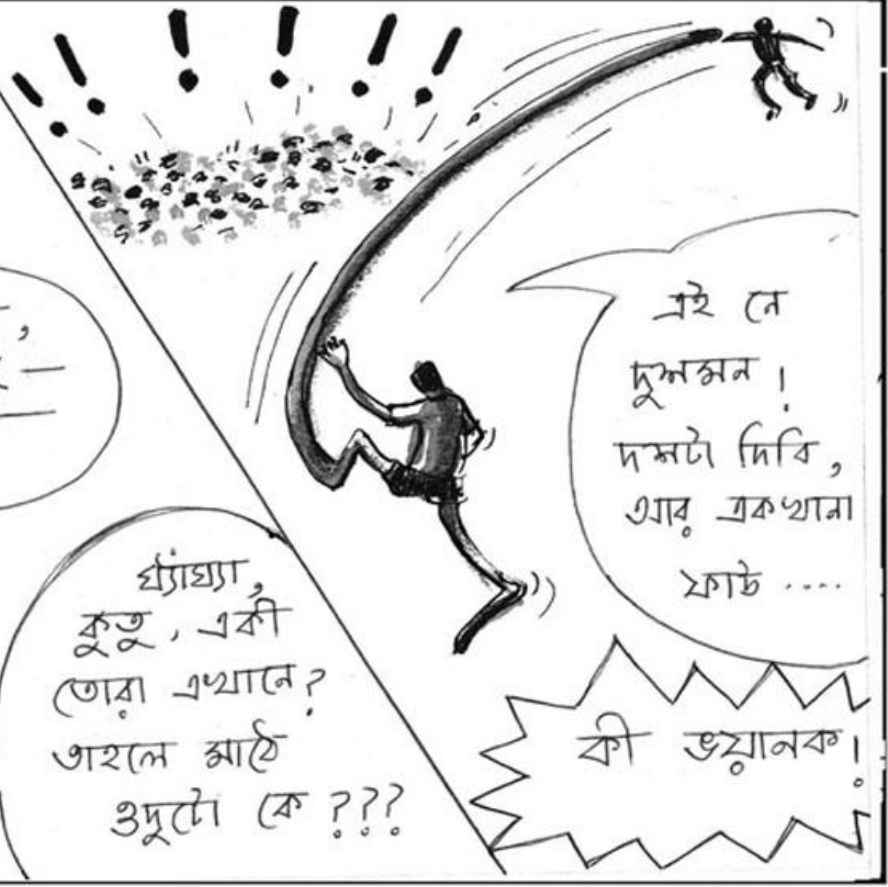 এই নে
দুশমন!
দশটা দিবি,
আর একখানা
ফাউ ....
কী ভয়ানক!
ঘ্যাঁঘ্যা,
কুতু, একী
তোরা এখানে?
তাহলে মাঠে
ওদুটো কে ???